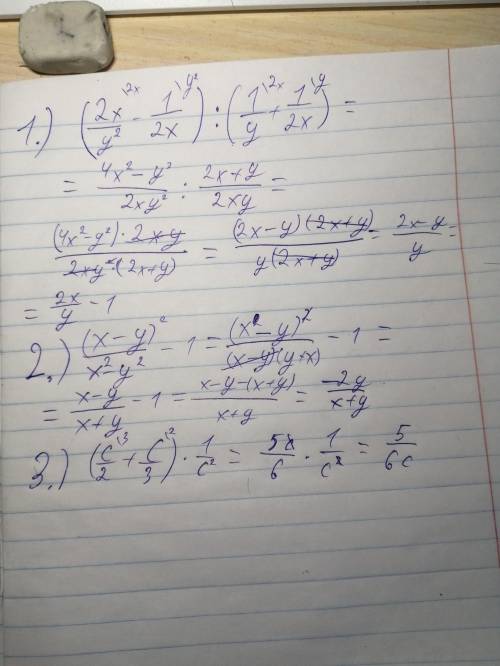 1.) (2x/y² \2x - 1/2x \y²) : (1/y \2x + 1/2x \y) =
= 4x² - y² / 2xy² : 2x+y / 2xy =
(4x²-y²) · 2xy / 2xy²·(2x+y) = (2x-y)(2x+y) / y(2x+y) = 2x-y / y =
= 2x/y - 1
2.) (x-y)² / x²y² - 1 = (x²-y)² / (x-y)(y+x) - 1 =
= x-y / x+y - 1 = x-y-(x+y) / x+y = -2y / x+y
3.) (c/2 \3 + c/3 \2) · 1/c² = 5c/6 · 1/c² = 5/6c